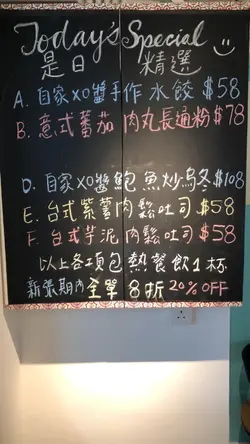 Today's Special
是日 精選
A. 自家XO醬手作水餃 $58
B. 意式蕃茄肉丸長通粉 $78
D. 自家XO醬鮑魚炒烏冬 $108
E. 台式紫薯肉鬆吐司 $58
F. 台式芋泥肉鬆吐司 $58
以上各項包熱餐飲1杯
新張期內全單8折 20% OFF